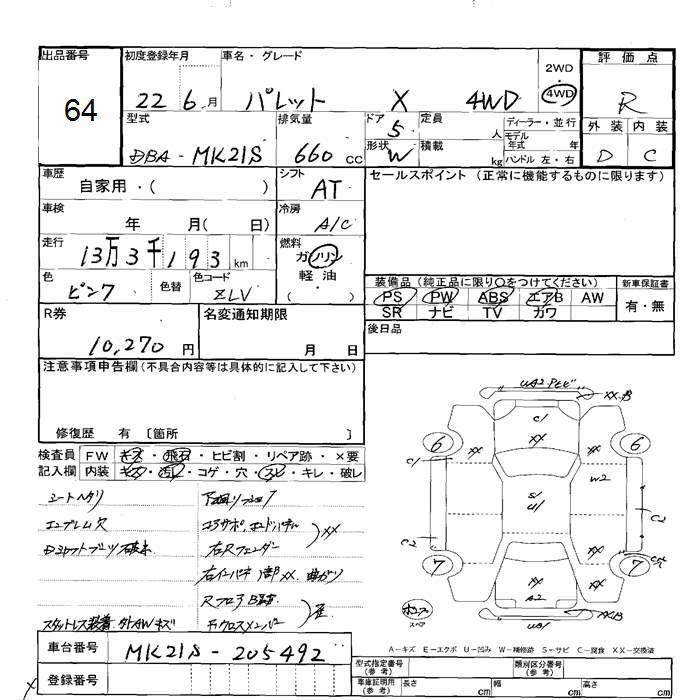 出品番号 64
初度登録年月 22 6月
車名・グレード パレット X 4WD
2WD・4WD
評価点 R
外装 D 内装 C
型式 DBA-MK21S
排気量 660 cc
ドア 5
形状 W
定員 人
積載 kg
ディーラー・並行
モデル年式 年
ハンドル 左・右
車歴 自家用・( )
シフト AT
セールスポイント (正常に機能するものに限ります)
車検 年 月( 日)
冷房 A/C
走行 13万3千193 km
燃料 ガソリン 軽油 ( )
色 ピンク
色替
色コード ZLV
装備品 (純正品に限り○をつけてください)
PS PW ABS エアB AW
SR ナビ TV カワ
新車保証書 有・無
R券 10,270円
名変通知期限 月 日
後日品
注意事項申告欄(不具合内容等は具体的に記入して下さい)
修復歴 有 〔箇所 〕
検査員記入欄
FW キズ・飛石・ヒビ割・リペア跡・×要
内装 キズ・汚れ・コゲ・穴・スレ・キレ・破レ
シートヘタリ
エンブレム穴
Dシャフトブーツ破れ
右Rフェンダー
XX
スタットレス装着
車台番号 MK21S-205492
登録番号
UA2
XX.B
C1
XX
6
6
C1
XX
XX
W2
S1
U1
C2
C2
XX
XX
7
7
XX
A2
スペア
UB1
A-キズ E-エクボ U-凹み W-補修跡 S-サビ C-腐食 XX-交換済
型式指定番号(参考)
類別区分番号(参考)
車庫証明用(参考) 長さ cm 幅 cm 高さ cm